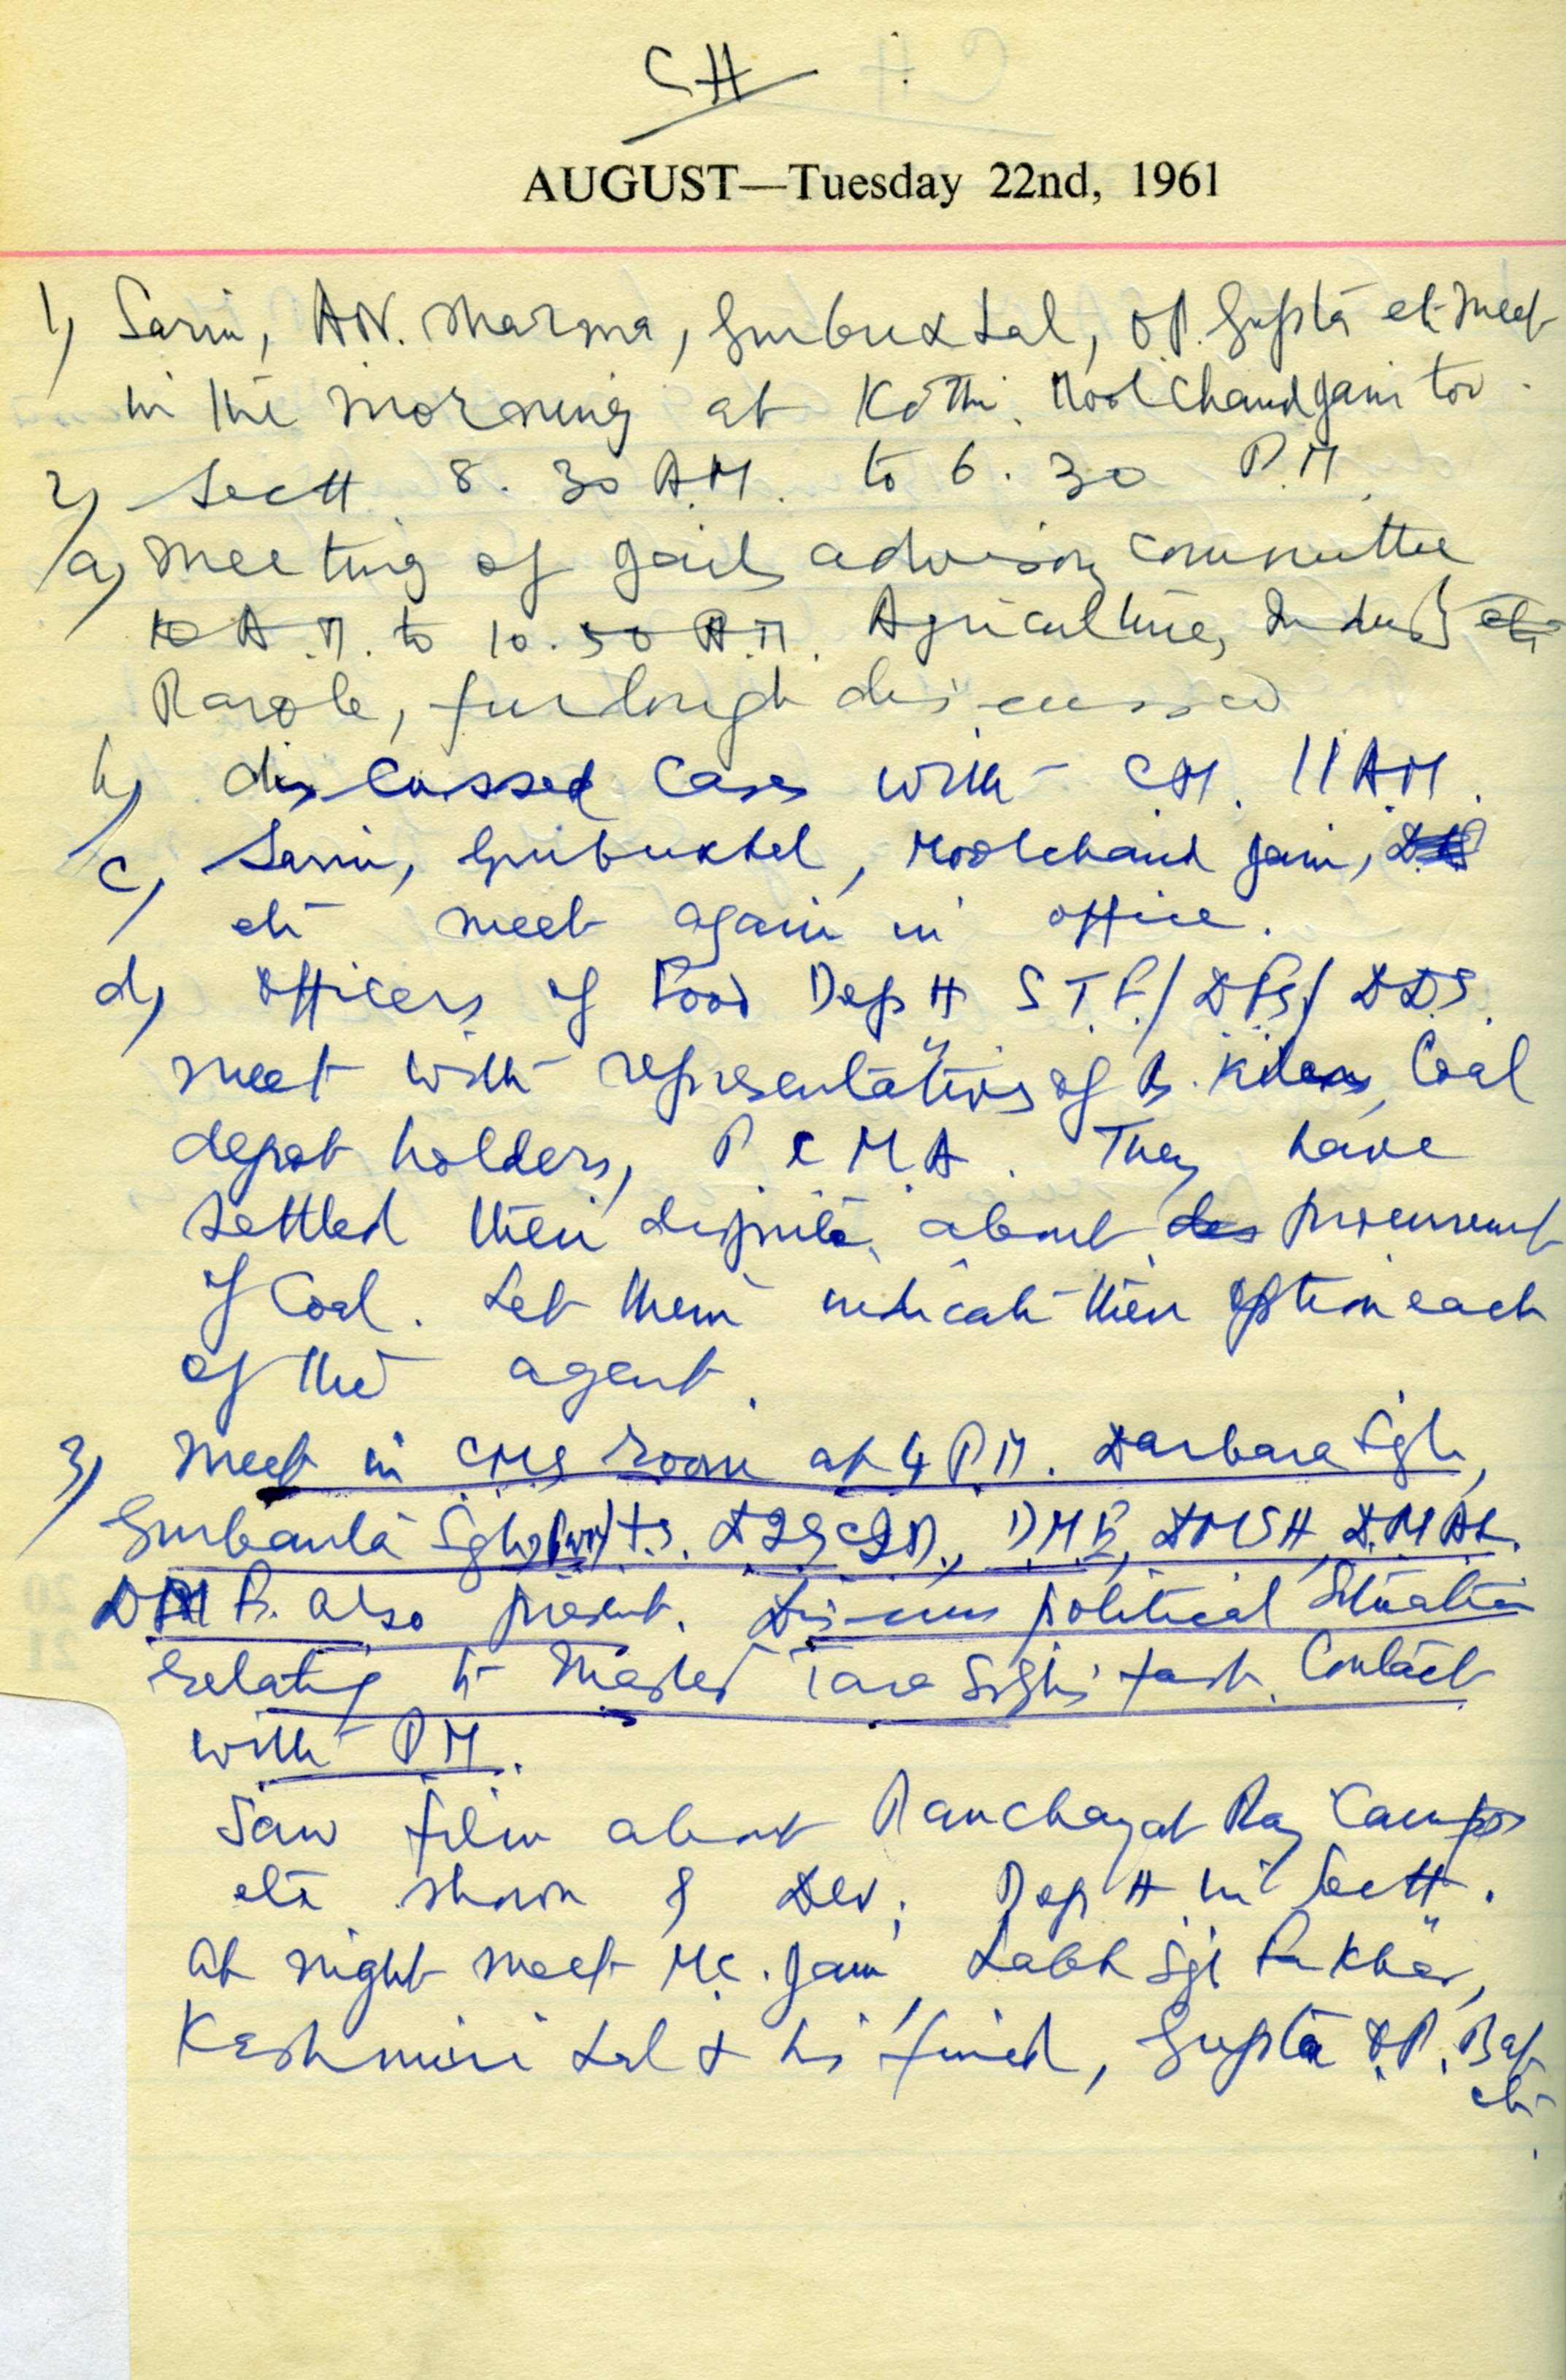 CH
AUGUST—Tuesday 22nd, 1961
1) Sarin, A.N. Sharma, Gurbux Lal, O.P. Gupta etc meet
in the morning at Kothi. Moolchand Jain too.
2) Sectt 8.30 A.M. to 6.30 P.M.
a) Meeting of Jails advisory committee
10 A.M. to 10.50 A.M. Agriculture, etc
Parole, furlough discussed
b) discussed cases with CM. 11 A.M.
c) Sarin, Gurbuxlal, Moolchand Jain,
etc meet again in office.
d) Officers of Food Deptt S.T.F./D.F.S/D.D.S.
meet with representatives of B. Kilens, Coal
depot holders, P.C.M.A. They have
settled their dispute about procurement
of Coal. Let them indicate their option each
of the agent.
3) Meet in CMs room at 4 P.M. Darbara Sgh,
Gurbanta Sgh, D.M.F, DMSH, D.M.AL.
also present. Discuss political Situation
relating to Master Tara Sghs' fast. Contact
with P.M.
Saw film about Panchayat Raj Camps
etc shown by Dev; Deptt in Sectt.
At night meet M.C. Jain, Labh Sgh
Kashmiri Lal & his friend, Gupta O.P.
etc